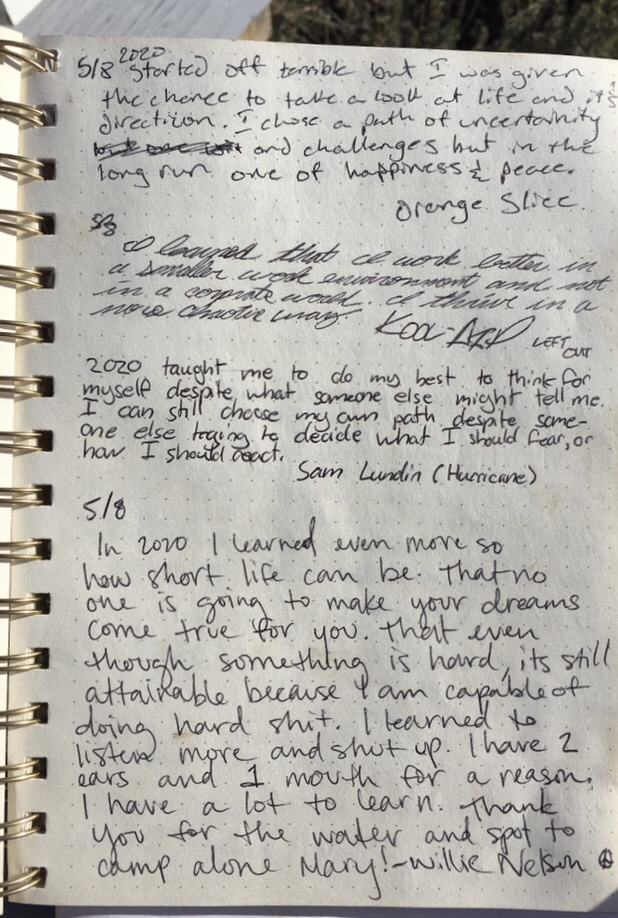 5/8 2020 started off terrible but I was given
the chance to take a look at life and it's
direction. I chose a path of uncertainity
and challenges but in the
long run one of happiness & peace.
Orange Slice
5/8
I learned that I work better in
a smaller work environment and not
in a corprate world. I thrive in a
more chaotic way.
LEFT
OUT
2020 taught me to do my best to think for
myself despite what someone else might tell me.
I can still choose my own path despite some-
one else trying to decide what I should fear, or
how I should react.
Sam Lundin (Hurricane)
5/8
In 2020 I learned even more so
how short life can be. That no
one is going to make your dreams
come true for you. That even
though something is hard, its still
attainable because I am capable of
doing hard shit. I learned to
listen more and shut up. I have 2
ears and 1 mouth for a reason.
I have a lot to learn. Thank
you for the water and spot to
camp alone Mary! - Willie Nelson